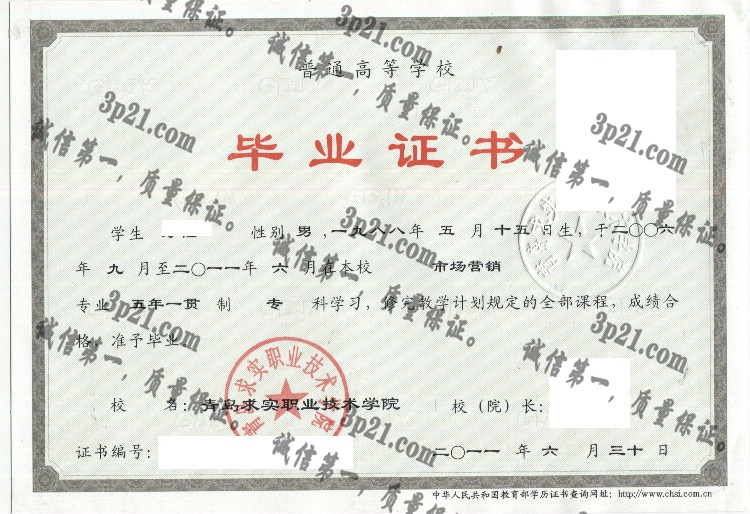 普通高等学校
毕业证书
学生 性别 男，一九八八年 五 月 十五 日生，于二〇〇六
年 九 月至二〇一一年 六 月在本校 市场营销
专业 五年一贯 制 专 科学习，修完教学计划规定的全部课程，成绩合
格，准予毕业。
校 名：青岛求实职业技术学院 校（院）长：
证书编号： 二〇一一 年 六 月 三十 日
中华人民共和国教育部学历证书查询网址：http://www.chsi.com.cn
青岛求实职业技术学院
3p21.com
诚信第一，质量保证。
3p21.com
诚信第一，质量保证。
3p21.com
诚信第一，质量保证。
3p21.com
诚信第一，质量保证。
3p21.com
诚信第一，质量保证。
3p21.com
诚信第一，质量保证。
3p21.com
诚信第一，质量保证。